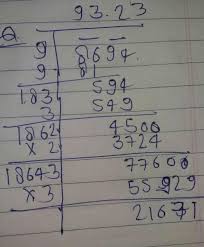 93.23
Q
9 8694
9 81
183 594
3 549
1862 4500
x 2 3724
18643 77600
x 3 55929
21671